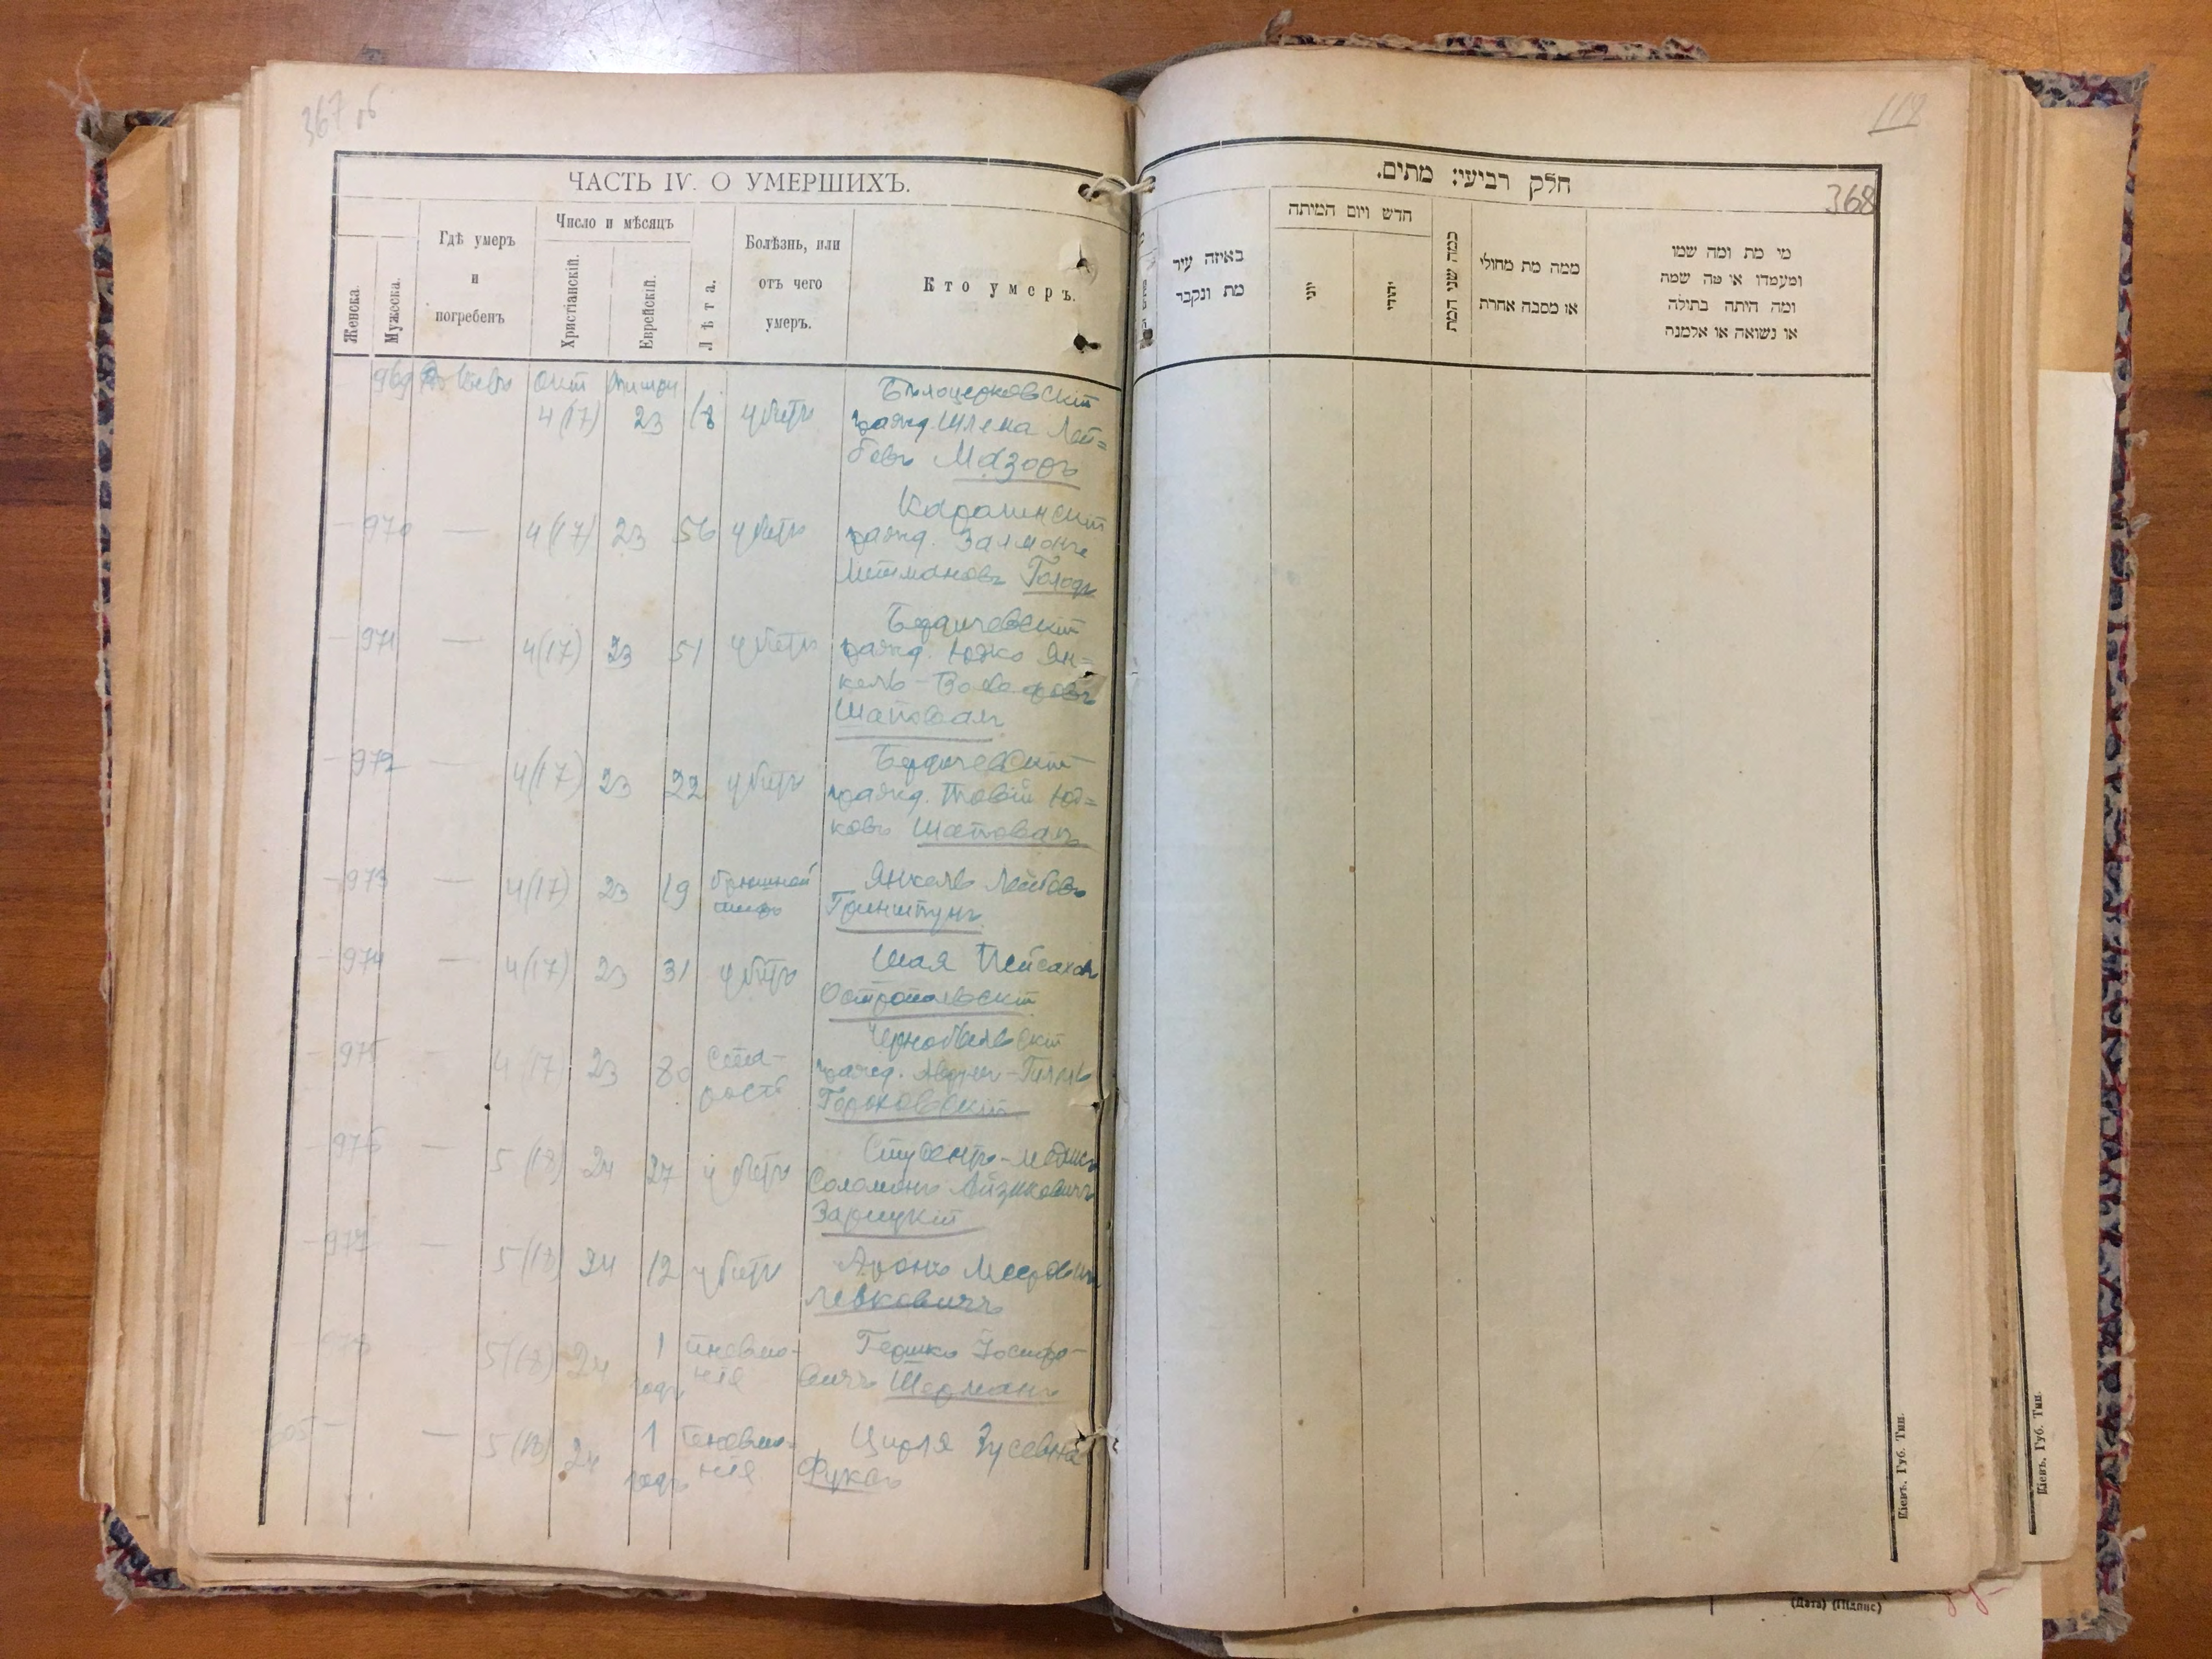 367 об
ЧАСТЬ IV. О УМЕРШИХЪ.
Женска.
Мужеска.
Гдѣ умеръ
и
погребенъ
Число и мѣсяцъ
Христіанскій.
Еврейскій.
Лѣта.
Болѣзнь, или
отъ чего
умеръ.
Кто умеръ.
969 Кіевъ Окт Тишри Бѣлоцерковскій
4(17) 23 18 убитъ гражд. Шлема Лей=
бовъ Мазоръ
— 970 — 4(17) 23 56 убитъ
гражд. Залманъ
Голодъ
— 971 — 4(17) 23 51 убитъ Бердичевскій
гражд. Юдко Ян=
кель-
Шаповалъ
— 972 — 4(17) 23 22 убитъ Бердичевскій
гражд. Товій Юд=
ковъ Шаповалъ
— 973 — 4(17) 23 19 брюшной
тифъ
Янкель Лейбовъ
Гринштунъ
— 974 — 4(17) 23 31 убитъ Шая Пейсахов
Остропольскій
— 975 — 4(17) 23 80 Ста-
рость
Чернобыльскій
гражд.
Горховскій
— 976 — 5(18) 24 27 убитъ Студентъ-медикъ
Соломонъ Айзиковичъ
Зарицкій
— 977 — 5(18) 24 12 убитъ Аронъ Меерович
Левковичъ
978 5(18) 24 1
годъ
пневмо-
нія
Гершко Іосифо-
вичъ Шерманъ
205 — — 5(18) 24 1
годъ
пневмо-
нія
Цирля Зусевна
Фуксъ
118
חלק רביעי: מתים.
368
באיזה עיר
מת ונקבר
חדש ויום המיתה
יוני
יהודי
כמה שני המת
ממה מת מחולי
או מסבה אחרת
מי מת ומה שמו
ומעמדו או מה שמה
ומה היתה בתולה
או נשואה או אלמנה
Кіевъ, Губ. Тип.
Кіевъ, Губ. Тип.
(Дата) (Підпис)